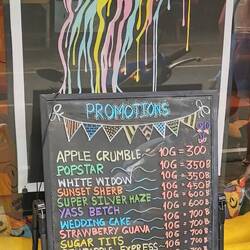 PROMOTIONS
APPLE CRUMBLE 10G = 300
POPSTAR 10G = 350B
WHITE WIDOW 10G = 350B
SUNSET SHERB 10G = 450B
SUPER SILVER HAZE 10G = 600B
YASS BETCH 10G = 600B
WEDDING CAKE 10G = 700B
STRAWBERRY GUAVA 10G = 700B
SUGAR TITS 10G = 700B
EXPRESS